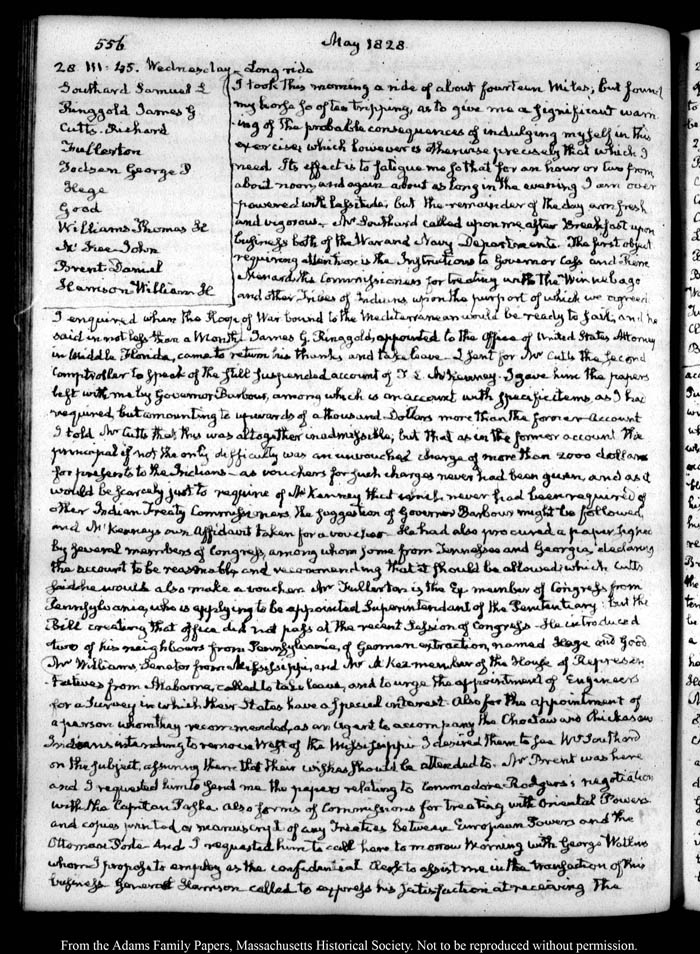 556
May 1828.
28. III:45. Wednesday. Long ride
Southard Samuel L
Ringgold James G
Cutts. Richard
Fullerton
Jackson George P
Hege
Good
Williams Thomas H
McKee John
Brent Daniel
Harrison William H
I took this morning a ride of about fourteen Miles; but found
my horse so often tripping, as to give me a significant warn
-ing of the probable consequences of indulging myself in this
exercise; which however is otherwise precisely that which I
need. Its effect is to fatigue me so that for an hour or two from
about noon, and again about as long in the evening I am over
powered with lassitude; but the remainder of the day am fresh
and vigorous. Mr Southard called upon me after Breakfast upon
business both of the War and Navy Departments. The first object
requiring attention is the Instructions to Governor Cass and Pierre
Menard, the Commissioners for treating with the Winnebago
and other Tribes of Indians upon the purport of which we agreed.
I enquired when the Sloop of War bound to the Mediterranean would be ready to sail, and he
said in not less than a Month. James G. Ringgold, appointed to the Office of United States Attorney
in Middle Florida, came to return his thanks and take leave. I sent for Mr Cutts the second
Comptroller to speak of the still suspended account of T. L. McKenney. I gave him the papers
left with me by Governor Barbour, among which is an account with specific items, as I had
required, but amounting to upwards of a thousand Dollars more than the former account
I told Mr Cutts that this was altogether inadmissible; but that as in the former account the
principal if not the only difficulty was an unvouched charge of more than 2000 dollars
for presents to the Indians—as vouchers for such charges never had been given, and as it
would be scarcely just to require of McKenney that which never had been required of
other Indian Treaty Commissioners, the suggestion of Governor Barbour might be followed,
and McKenney's own Affidavit taken for a voucher. He had also procured a paper signed
by several members of Congress, among whom some from Tennessee and Georgia, declaring
the account to be reasonable, and recommending that it should be allowed; which Cutts
said he would also make a voucher. Mr Fullerton is the Ex member of Congress from
Pennsylvania, who is applying to be appointed Superintendant of the Penitentiary: but the
Bill creating that office did not pass at the recent Session of Congress. He introduced
two of his neighbours from Pennsylvania, of German extraction, named Hege and Good
Mr Williams, Senator from Mississippi, and Mr McKee member of the House of Represen
-tatives from Alabama, called to take leave, and to urge the appointment of Engineers
for a Survey in which their States have a special interest. Also for the appointment of
a person whom they recommended, as an Agent to accompany the Choctaw and Chickasaw
Indians intending to remove West of the Mississippi. I desired them to see Mr Southard
on the subject, assuring them that their wishes should be attended to. Mr Brent was here
and I requested him to send me the papers relating to Commodore Rodgers's negotiation
with the Capitan Pasha. Also forms of Commissions for treating with Oriental Powers
and copies printed or manuscript of any Treaties between European Powers and the
Ottoman Porte. And I requested him to call here to morrow Morning with George
whom I propose to employ as the confidential Clerk to assist me in the transaction of this
business. General Harrison called to express his satisfaction at receiving the
From the Adams Family Papers, Massachusetts Historical Society. Not to be reproduced without permission.